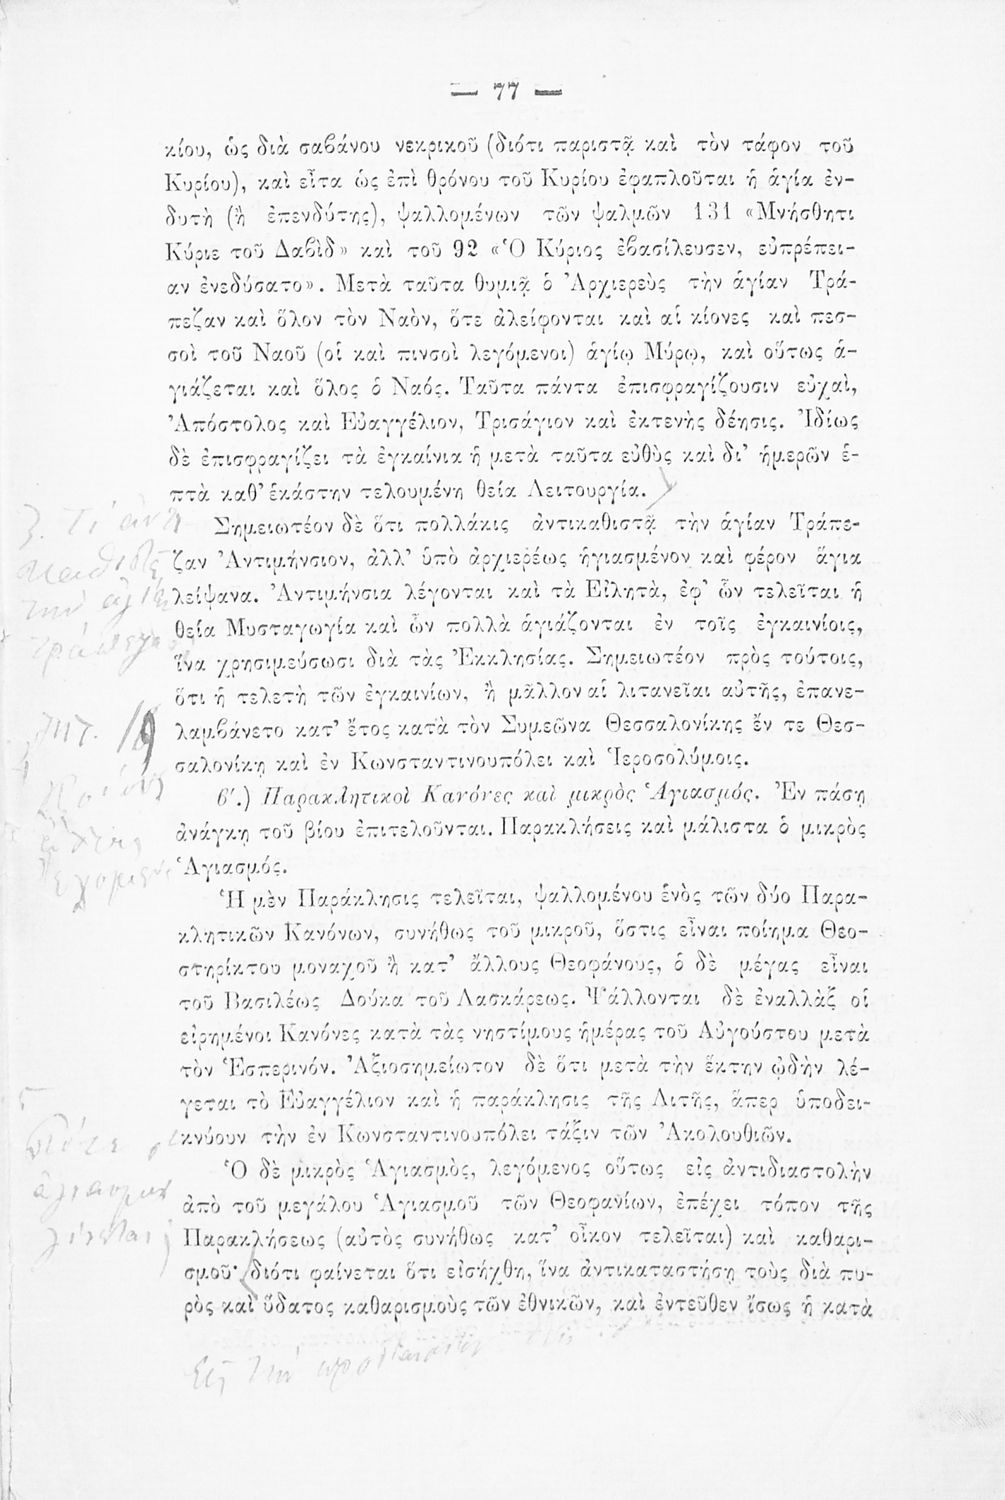 — 77 —
κίου, ὡς διὰ σαβάνου νεκρικοῦ (διότι παριστᾷ καὶ τὸν τάφον τοῦ
Κυρίου), καὶ εἶτα ὡς ἐπὶ θρόνου τοῦ Κυρίου ἐφαπλοῦται ἡ ἁγία ἐν-
δυτὴ (ἢ ἐπενδύτης), ψαλλομένων τῶν ψαλμῶν 131 «Μνήσθητι
Κύριε τοῦ Δαβὶδ» καὶ τοῦ 92 «Ὁ Κύριος ἐβασίλευσεν, εὐπρέπει-
αν ἐνεδύσατο». Μετὰ ταῦτα θυμιᾷ ὁ Ἀρχιερεὺς τὴν ἁγίαν Τρά-
πεζαν καὶ ὅλον τὸν Ναὸν, ὅτε ἀλείφονται καὶ αἱ κίονες καὶ πεσ-
σοὶ τοῦ Ναοῦ (οἱ καὶ πινσοὶ λεγόμενοι) ἁγίῳ Μύρῳ, καὶ οὕτως ἁ-
γιάζεται καὶ ὅλος ὁ Ναός. Ταῦτα πάντα ἐπισφραγίζουσιν εὐχαὶ,
Ἀπόστολος καὶ Εὐαγγέλιον, Τρισάγιον καὶ ἐκτενὴς δέησις. Ἰδίως
δὲ ἐπισφραγίζει τὰ ἐγκαίνια ἡ μετὰ ταῦτα εὐθὺς καὶ δι' ἡμερῶν ἑ-
πτὰ καθ' ἑκάστην τελουμένη θεία Λειτουργία.
Σημειωτέον δὲ ὅτι πολλάκις ἀντικαθιστᾷ τὴν ἁγίαν Τράπε-
ζαν Ἀντιμήνσιον, ἀλλ' ὑπὸ ἀρχιερέως ἡγιασμένον καὶ φέρον ἅγια
λείψανα. Ἀντιμήνσια λέγονται καὶ τὰ Εἰλητὰ, ἐφ' ὧν τελεῖται ἡ
θεία Μυσταγωγία καὶ ὧν πολλὰ ἁγιάζονται ἐν τοῖς ἐγκαινίοις,
ἵνα χρησιμεύσωσι διὰ τὰς Ἐκκλησίας. Σημειωτέον πρὸς τούτοις,
ὅτι ἡ τελετὴ τῶν ἐγκαινίων, ἢ μᾶλλον αἱ λιτανεῖαι αὐτῆς, ἐπανε-
λαμβάνετο κατ' ἔτος κατὰ τὸν Συμεῶνα Θεσσαλονίκης ἔν τε Θεσ-
σαλονίκῃ καὶ ἐν Κωνσταντινουπόλει καὶ Ἱεροσολύμοις.
β'.) Παρακλητικοὶ Κανόνες καὶ μικρὸς Ἁγιασμός. Ἐν πάσῃ
ἀνάγκῃ τοῦ βίου ἐπιτελοῦνται. Παρακλήσεις καὶ μάλιστα ὁ μικρὸς
Ἁγιασμός.
Ἡ μὲν Παράκλησις τελεῖται, ψαλλομένου ἑνὸς τῶν δύο Παρα-
κλητικῶν Κανόνων, συνήθως τοῦ μικροῦ, ὅστις εἶναι ποίημα Θεο-
στηρίκτου μοναχοῦ ἢ κατ' ἄλλους Θεοφάνους, ὁ δὲ μέγας εἶναι
τοῦ Βασιλέως Δούκα τοῦ Λασκάρεως. Ψάλλονται δὲ ἐναλλὰξ οἱ
εἰρημένοι Κανόνες κατὰ τὰς νηστίμους ἡμέρας τοῦ Αὐγούστου μετὰ
τὸν Ἑσπερινόν. Ἀξιοσημείωτον δὲ ὅτι μετὰ τὴν ἕκτην ᾠδὴν λέ-
γεται τὸ Εὐαγγέλιον καὶ ἡ παράκλησις τῆς Λιτῆς, ἅπερ ὑποδει-
κνύουν τὴν ἐν Κωνσταντινουπόλει τάξιν τῶν Ἀκολουθιῶν.
Ὁ δὲ μικρὸς Ἁγιασμὸς, λεγόμενος οὕτως εἰς ἀντιδιαστολὴν
ἀπὸ τοῦ μεγάλου Ἁγιασμοῦ τῶν Θεοφανίων, ἐπέχει τόπον τῆς
Παρακλήσεως (αὐτὸς συνήθως κατ' οἶκον τελεῖται) καὶ καθαρι-
σμοῦ· διότι φαίνεται ὅτι εἰσήχθη, ἵνα ἀντικαταστήσῃ τοὺς διὰ πυ-
ρὸς καὶ ὕδατος καθαρισμοὺς τῶν ἐθνικῶν, καὶ ἐντεῦθεν ἴσως ἡ κατὰ